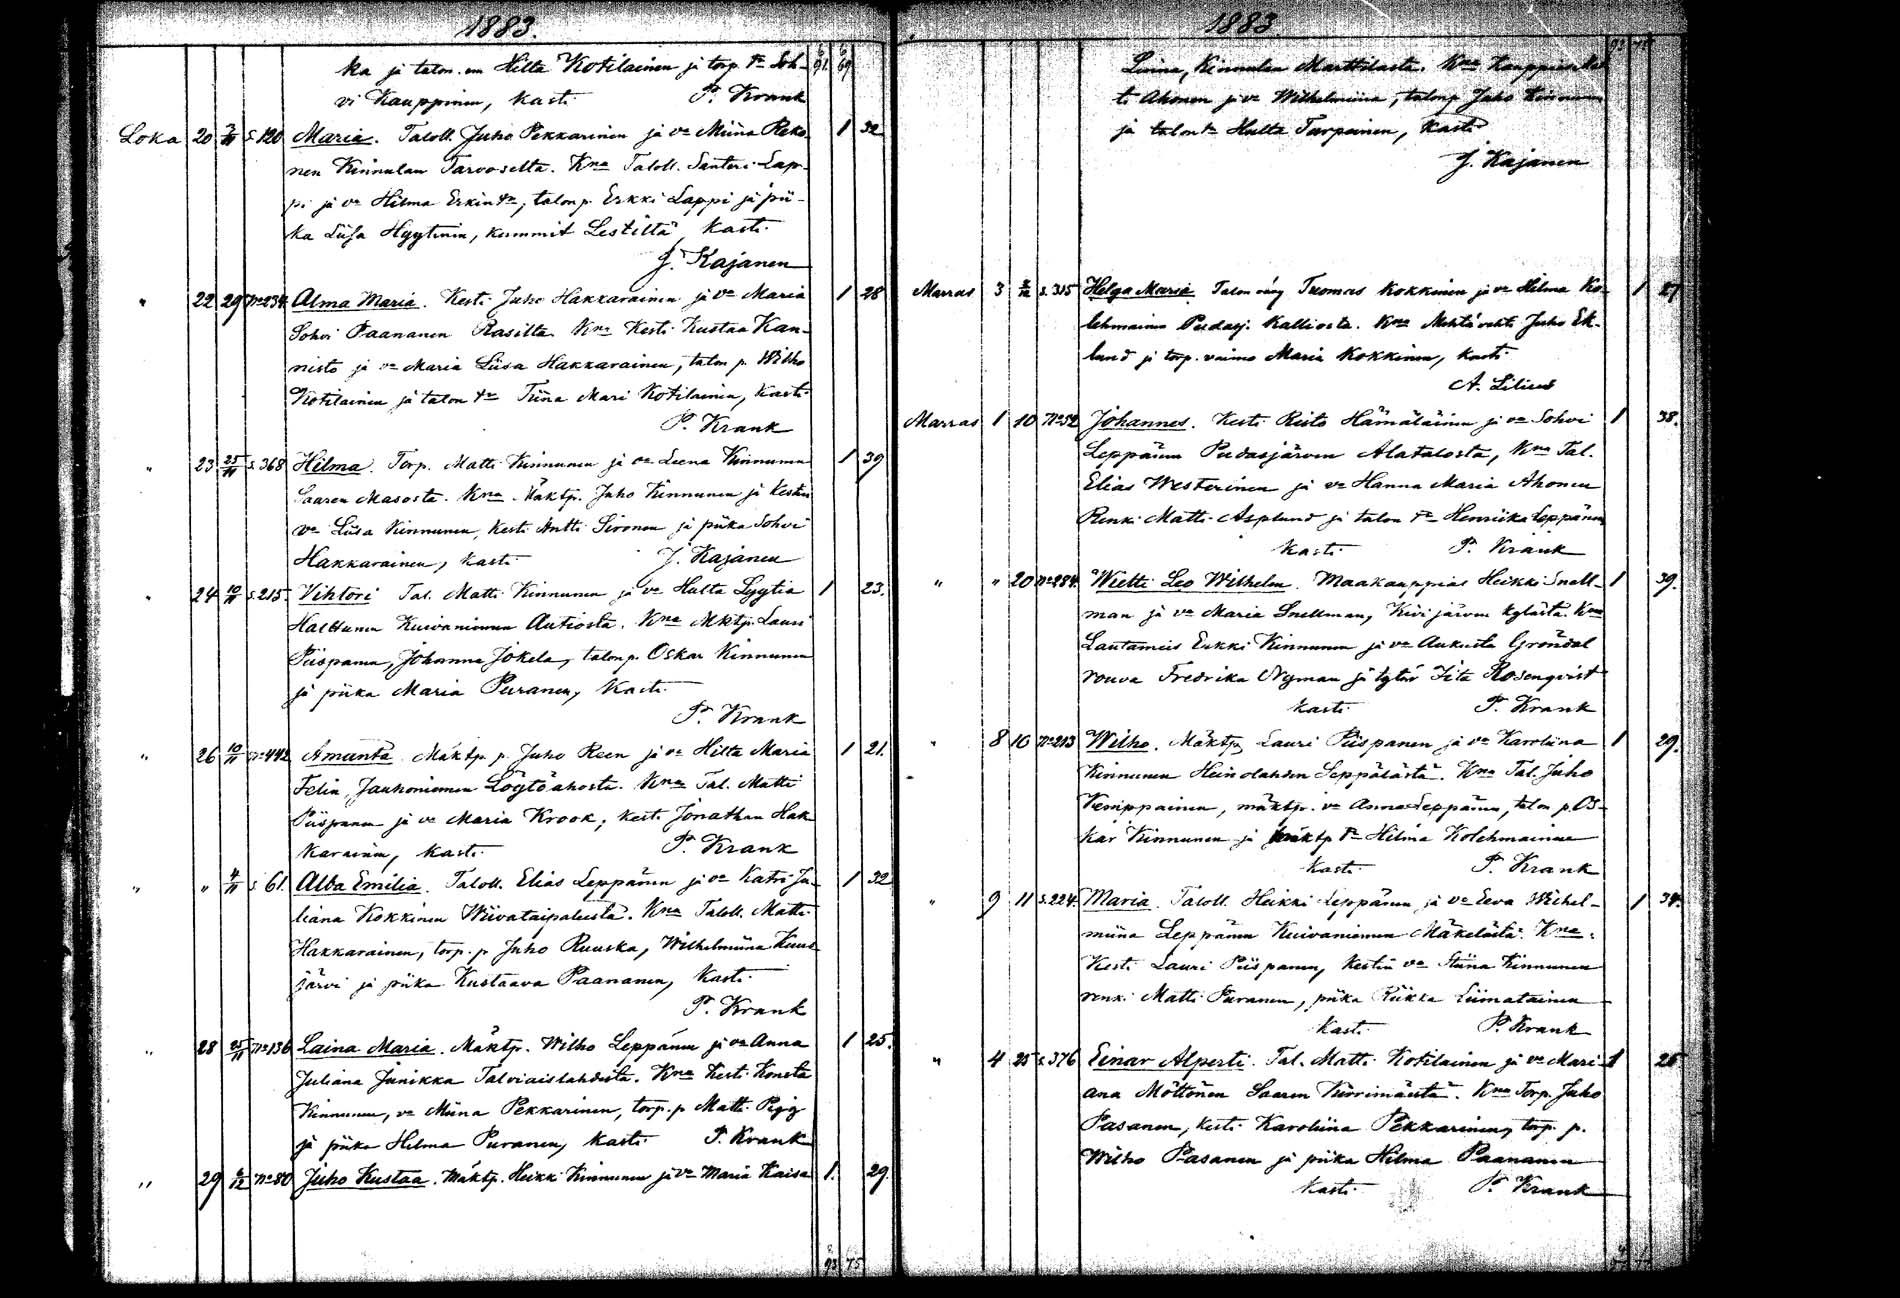 1883.
6 6
91. 69
ka ja talon em Hilta Kotilainen ja torp. tr Soh-
vi Kauppinen, kasti P. Krank
Loka 20 2/11 s. 120 Maria. Taloll. Juho Pekkarinen ja va Miina Reko- 1 32
nen Kinnulan Tarvoselta. Kna Taloll. Santeri Lap-
pi ja va Hilma Erkin tr, talon p. Erkki Lappi ja pii-
ka Liisa Hyytinen, kummit Lestiltä, kasti
J. Kajanen
" 22 29 No 234. Alma Maria. Kesti Juho Hakkarainen ja va Maria 1 28
Sohvi Paananen Rasilta. Kna Kesti Kustaa Kan-
nisto ja va Maria Liisa Hakkarainen, talon p. Wilho
Kotilainen ja talon tr Tiina Mari Kotilainen, kasti
P. Krank
" 23 25/11 s. 368 Hilma. Torp. Matti Kinnunen ja va Leena Kinnunen 1 39
Saaren Masosta. Kna Mäktp. Juho Kinnunen ja Kestin
va Liisa Kinnunen, Kesti Antti Sironen ja piika Sohvi
Hakkarainen, kasti J. Kajanen
" 24 10/11 s. 215. Vihtori Tal. Matti Kinnunen ja va Hulta Lyytia 1 23.
Halttunen Kuivaniemen Autiosta. Kna Mktp. Lauri
Piispanen, Johanna Jokela, talon p. Oskar Kinnunen
ja piika Maria Puranen, kasti
P. Krank
" 26 10/11 No 442 Amanta. Mäktp. p. Juho Reen ja va Hilta Maria 1 21.
Felin, Jauhoniemen Löytöahosta. Kna Tal. Matti
Piispanen ja va Maria Krook, kesti Jonathan Hak-
karainen, kasti P. Krank
" " 4/11 s. 61. Alba Emilia. Taloll. Elias Leppänen ja va Katri Ju- 1 32
liana Kokkinen Wiivataipaleesta. Kna Taloll. Matti
Hakkarainen, torp. p. Juho Ruuska, Wilhelmiina Kuus-
järvi ja piika Kustaava Paananen, kasti
P. Krank
" 28 25/11 No 136 Laina Maria. Mäktp. Wilho Leppänen ja va Anna 1 25.
Juliana Junikka Talviaislahdesta. Kna Kesti Konsta
Kinnunen, va Miina Pekkarinen, torp. p Matti Pigg
ja piika Hilma Puranen, kasti P. Krank
" 29 6/12 No 80 Juho Kustaa. Mäktp. Heikki Kinnunen ja va Maria Kaisa 1. 29.
93 75
1883.
93 75
Leena, Kinnulan Marttilasta. Kna Kauppias
ti Ahonen ja va Wilhelmiina, talon p Juho Kinnunen
ja talon tr Hulta Turpeinen, kasti
J. Kajanen
Marras 3 2/12 s. 315 Helga Maria Talon väy Tuomas Kokkinen ja va Hilma Ko- 1 27
lehmainen Pudasj. Kalliosta. Kna Mehtävahti Juho Ek-
lund ja torp. vaimo Maria Kokkinen, kasti
A. Lilius
Marras 1 10 No 52 Johannes. Kesti Risto Hämäläinen ja va Sohvi 1 38.
Leppänen Pudasjärven Alatalosta, Kna Tal.
Elias Westerinen ja va Hanna Maria Ahonen
Renki Matti Asplund ja talon tr Henriika Leppänen
kasti P. Krank
" " 20 No 284. Wietti Leo Wilhelm. Maakauppias Heikki Snell- 1 39.
man ja va Maria Snellman, Kivijärven kylästä. Kna
Lautamies Erkki Kinnunen ja va Aukusta Gröndal
rouva Fredrika Nyman ja tytär Iita Rosenqvist
kasti P. Krank
" 8 10 No 213 Wilho. Mäktp. Lauri Piispanen ja va Karoliina 1 29.
Kinnunen Heinolahden Seppälästä. Kna Tal. Juho
Kemppainen, mäktp. va Anna Leppänen, talon p. Os-
kar Kinnunen ja mäktp tr Hilma Kolehmainen
kasti P. Krank
" 9 11 s. 224. Maria. Taloll. Heikki Leppänen ja va Eeva Wilhel- 1 34.
miina Leppänen Kuivaniemen Mäkelästä. Kna.
Kesti Lauri Piispanen, kestin va Stiina Kinnunen
renki Matti Puranen, piika Riikka Liimatainen
kasti P. Krank
" 4 25 s. 376 Einar Alperti. Tal. Matti Kotilainen ja va Mari- 1 25
ana Möttönen Saaren Kiirimäestä. Kna Torp. Juho
Pasanen, kesti Karoliina Pekkarinen, torp. p.
Wilho Pasanen ja piika Hilma Paananen
kasti P. Krank